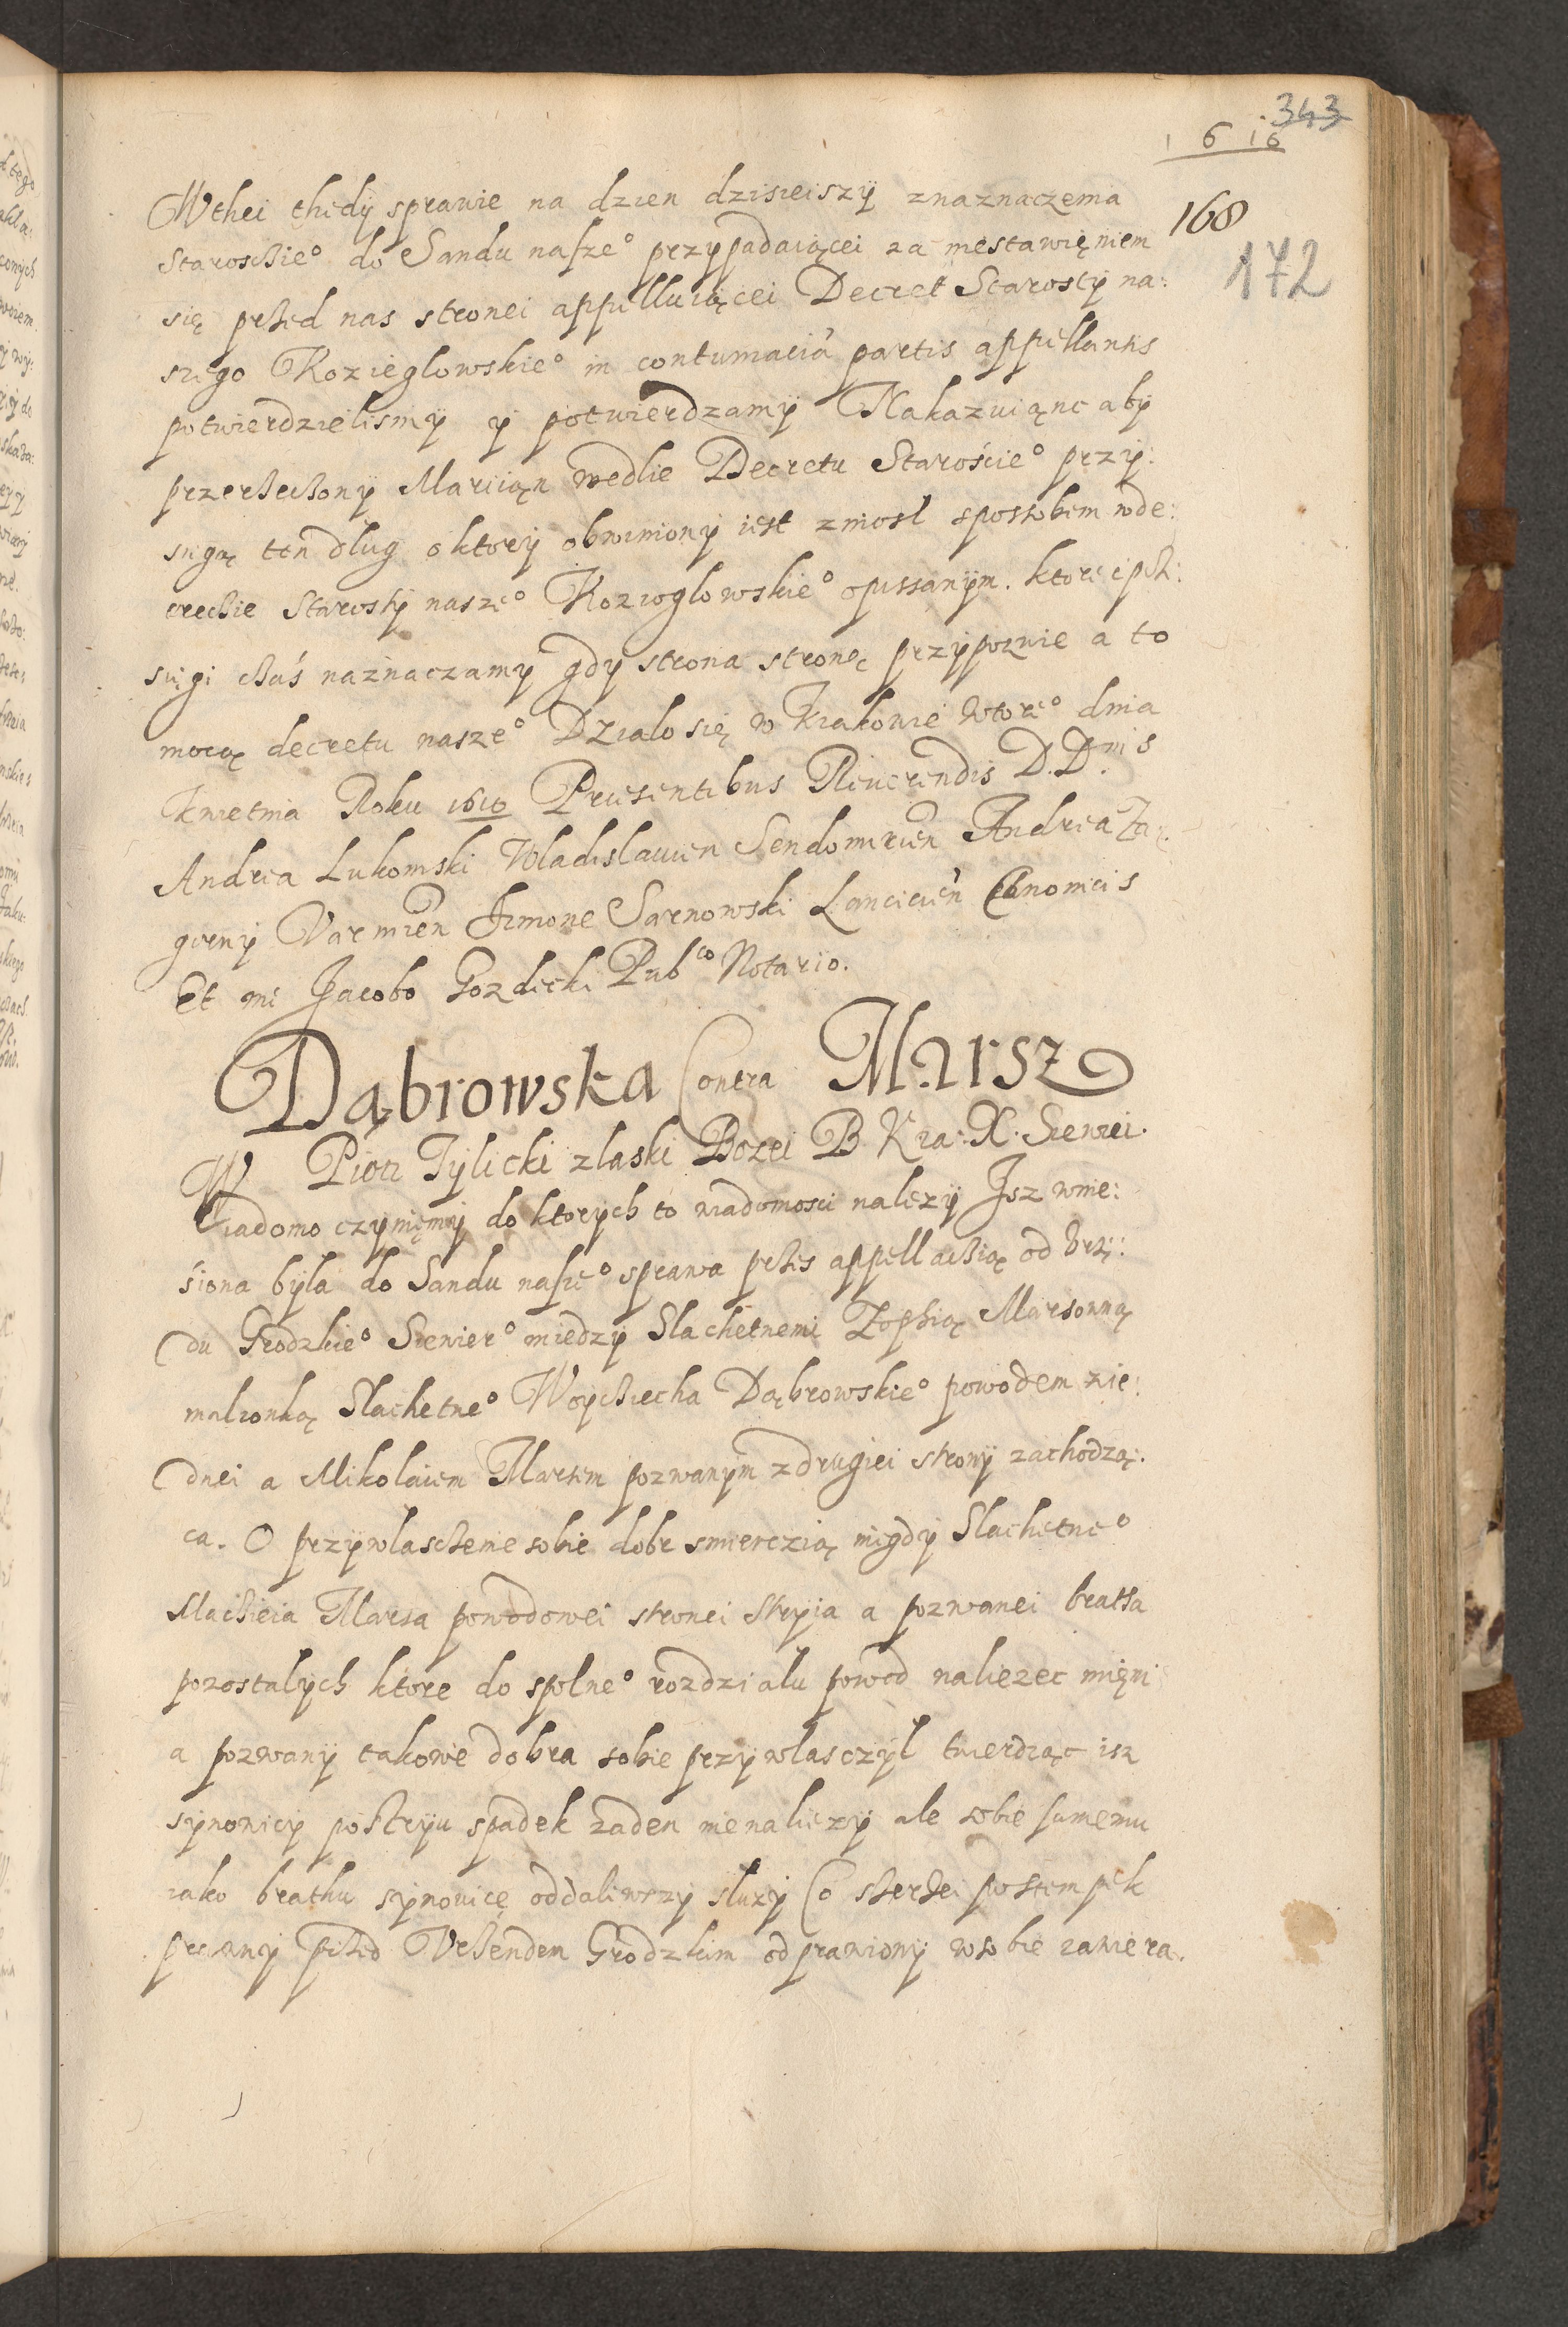 343
1616
168
172
Wthei thedÿ sprawie na dzien dzisieiszÿ znaznaczenia
Staroschie° do Sandu nasze° przypadaiącei za niestawięniem
się przed nas stronei appelluiącei Decret Starostÿ na:
szego Kozieglowskie° in contumaciã partis appellantis
potwierdzielismÿ ÿ potwierdzamÿ Nakazuiąnc abÿ
przerzeczonÿ Marcian wedlie Decretu Staroście° przÿ:
sięgą ten dlug o ktorÿ obwinionÿ iest zniosl sposobem wde:
crechie Starostÿ nasze° Kozioglowskie° opissanÿm. ktorei prz:
sięgi czas naznaczamÿ gdy strona stronę przypozwie a to
mocą decretu nasze° Dzialo się w Krakowie wtore° dnia
Kwietnia Roku 1616 Presentibus Reuerendis D.D.nis
Andrea Lukomski Wladislauien Sendomirien Andrea Za:
gornÿ Varmien Simone Sarnowski Lancicien Canonicis
Et me Jacobo Gozdecki Pubco Notario.
Dąbrowska Contra Marsz
Piotr Tÿlicki z laski Bozei B. Kra: X. Siewiei.
Wiadomo czÿnięmÿ do ktorych to wiadomosci nalezÿ Jsz wnie:
siona bÿla do Sandu nasze° sprawa przes appellacÿią od Vrzę:
du Grodzkie° Siewier° miedzÿ Slachetnemi Zophią Marsowną
malzonką Slachetne° Woyciecha Dąbrowskie° powodem z ie:
dnei a Mikolaiem Marsem pozwanÿm z drugiei stronÿ zachodzą:
ca. O przÿwlasczenie sobie dobr smierczią niegdÿ Slachetne°
Macieia Marsa powodowei stronei Stryia a pozwanei bratha
pozostalÿch ktore do spolne° rozdzialu powod naliezec mięni
a pozwanÿ takowe dobra sobie przÿwlasczÿl twierdząc isz
sÿnowicÿ po Strÿiu spadek zaden nie naliezÿ ale sobie samemu
iako brathu sÿnowicę oddaliwszÿ sluzÿ Co szerzei postempek
prawnÿ przed Vrzendem Grodzkim odprawionÿ w sobie zawiera.